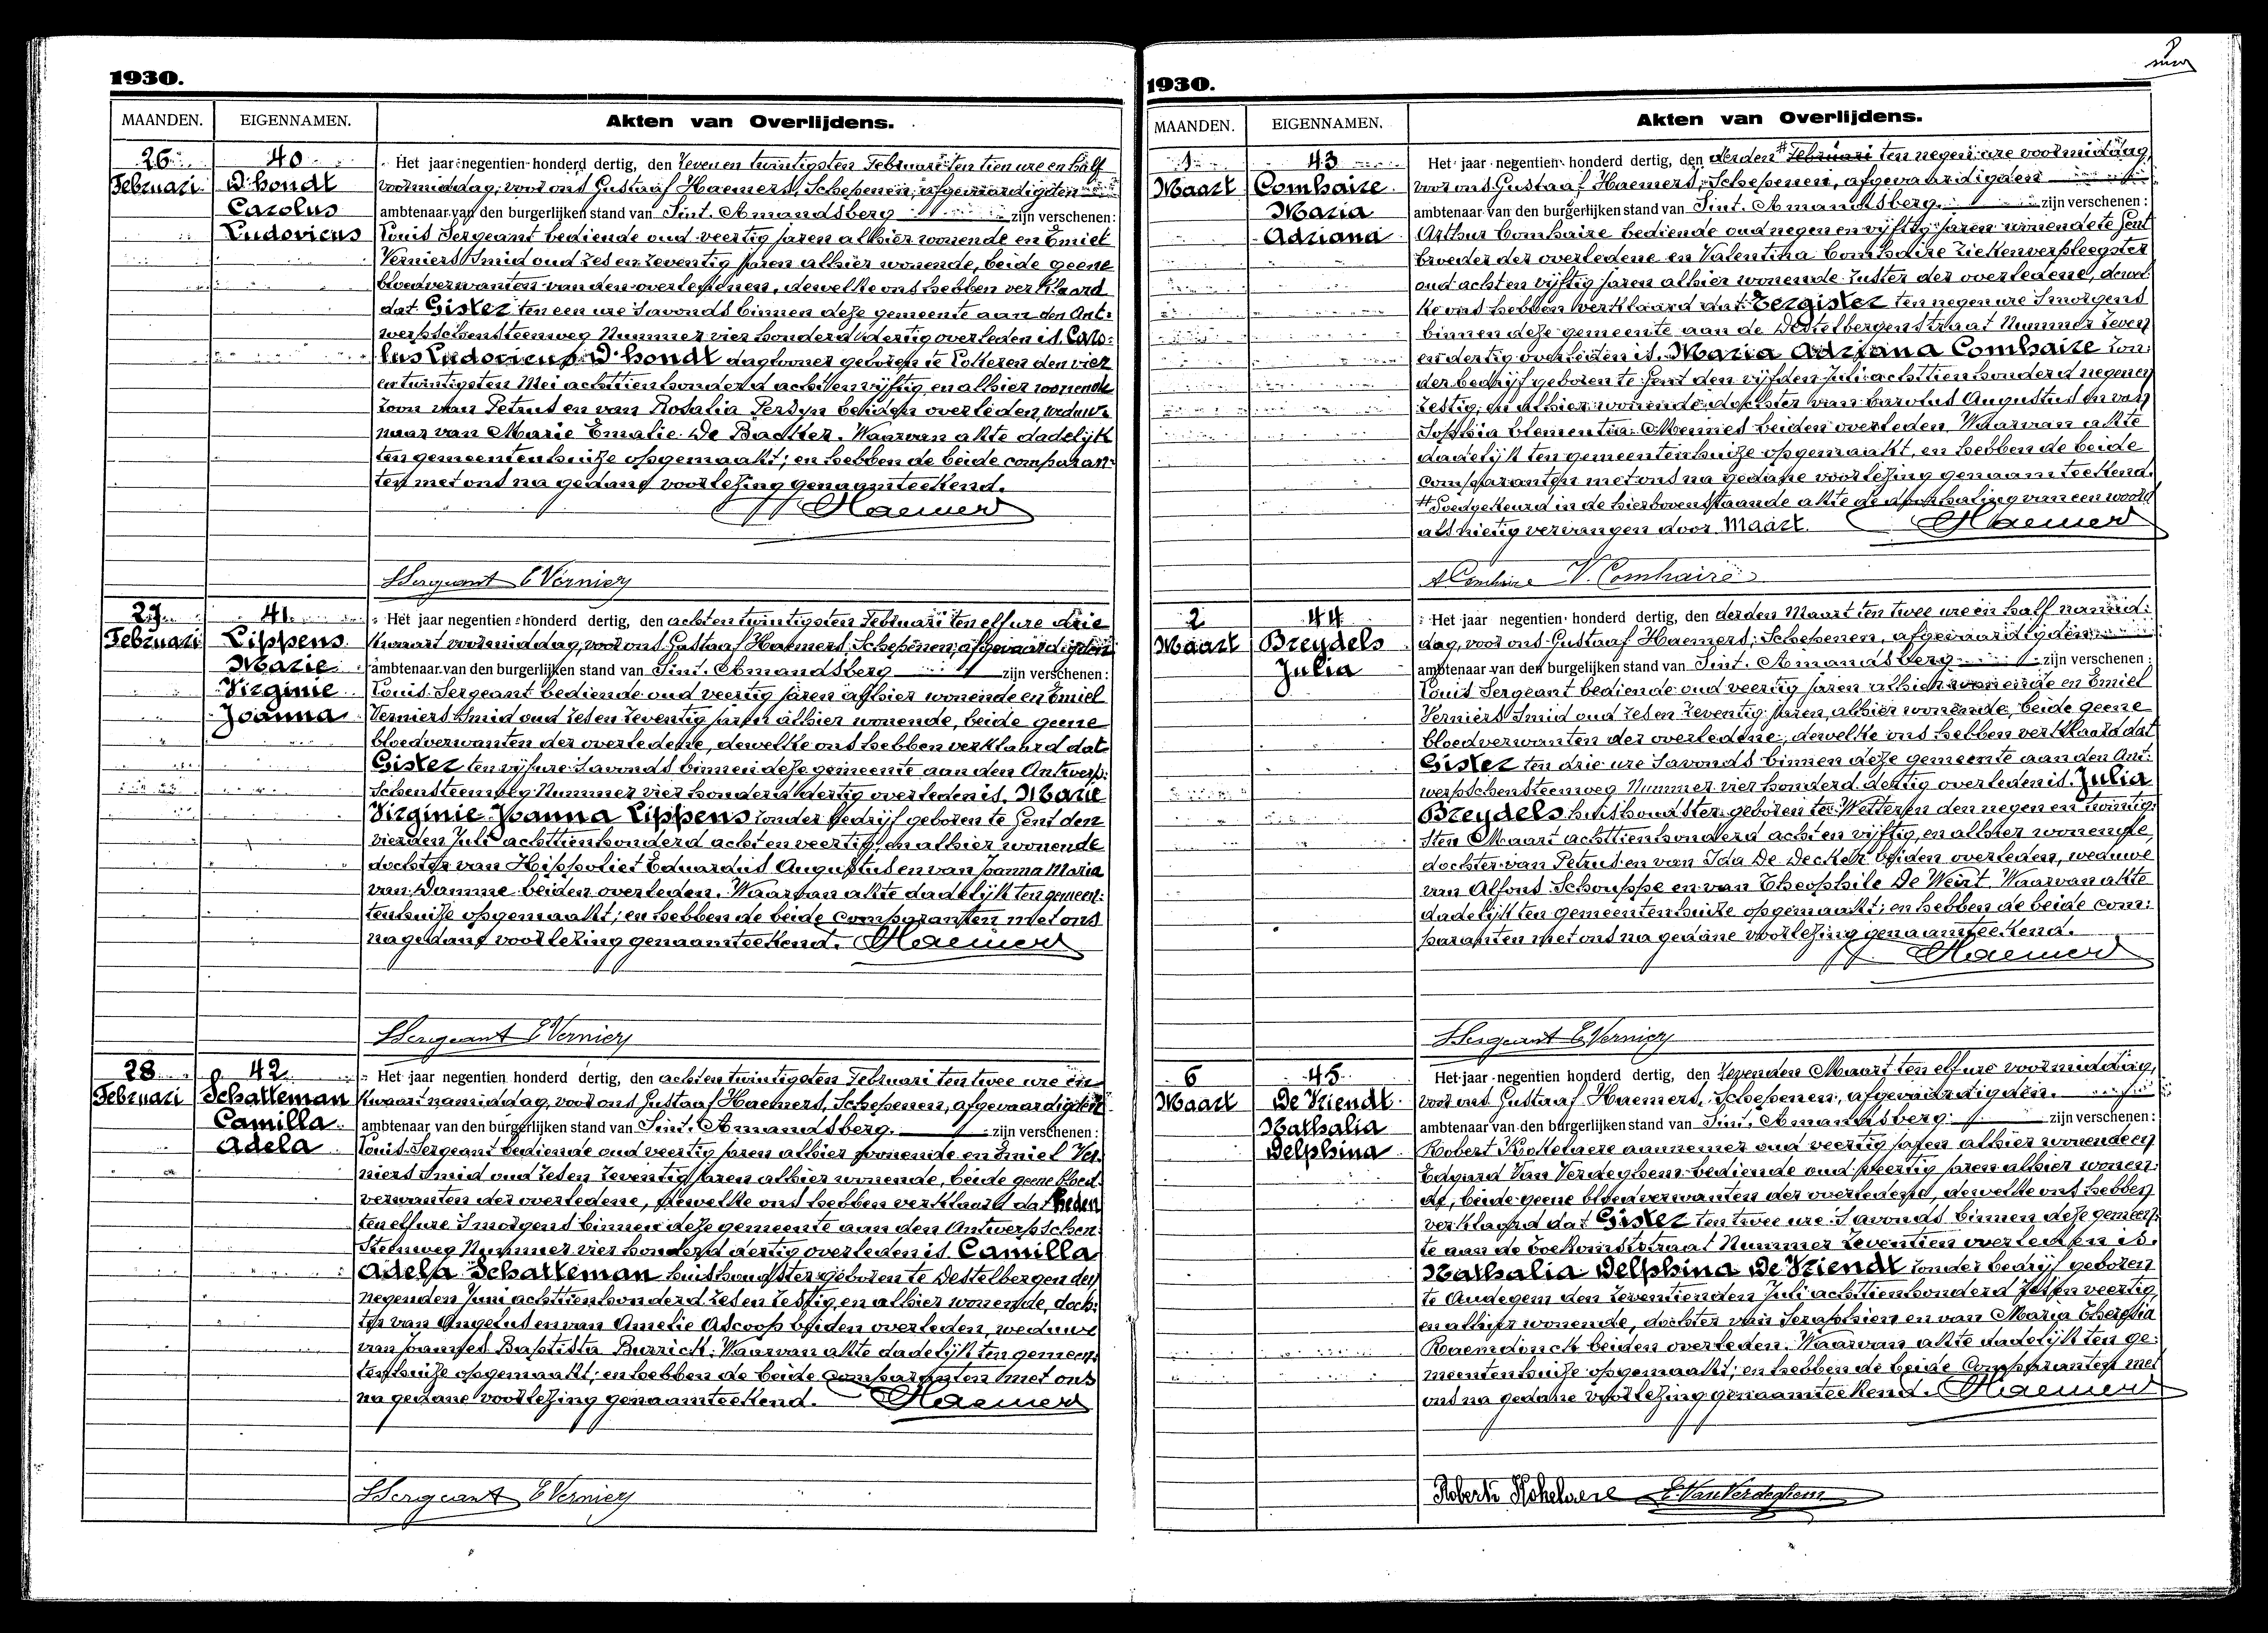 1930.
MAANDEN. EIGENNAMEN. Akten van Overlijdens.
26 Februari
40
D'hondt
Carolus
Ludovicus
Het jaar negentien honderd dertig, den zeven en twintigsten Februari ten tien ure en half
voormiddag, voor ons Gustaaf Haemers, Schepenen, afgevaardigden
ambtenaar van den burgerlijken stand van Sint. Amandsberg zijn verschenen:
Louis Sergeant bediende oud veertig jaren alhier wonende en Emiel
Verniers Smid oud zes en zeventig jaren alhier wonende, beide geene
bloedverwanten van den overledenen, dewelke ons hebben verklaard
dat Gister ten een ure s'avonds binnen deze gemeente aan den Ant:
werpschensteenweg Nummer vier honderd dertig overleden is. Caro:
lus Ludovicus D'hondt dagloner geboren te Lokeren den vier
en twintigsten Mei achttien honderd acht en vijftig en alhier wonende
zoon van Petrus en van Rosalia Persyn beiden overleden, weduwe
naar van Marie Emalie De Backer. Waarvan akte dadelijk
ten gemeentenhuize opgemaakt; en hebben de beide comparan:
ten met ons na gedane voorlezing genaamteekend.
Haemers
LSergeant EVerniers
27 Februari
41
Lippens
Marie
Virginie
Joanna
Het jaar negentien honderd dertig, den achten twintigsten Februari ten elf ure drie
kwaart voormiddag, voor ons Gustaaf Haemers, Schepenen, afgevaardigden
ambtenaar van den burgerlijken stand van Sint. Amandsberg zijn verschenen:
Louis Sergeant bediende oud veertig jaren alhier wonende en Emiel
Verniers Smid oud zes en zeventig jaren alhier wonende, beide geene
bloedverwanten der overledene, dewelke ons hebben verklaard dat
Gister ten vijf ure s'avonds binnen deze gemeente aan den Antwerp:
schensteenweg Nummer vier honderd dertig overleden is. Marie
Virginie Joanna Lippens zonder bedrijf geboren te Gent den
vierden Juli achttien honderd acht en veertig, en alhier wonende
dochter van Hippoliet Eduardus Augustus en van Joanna Maria
van Damme beiden overleden. Waarvan akte dadelijk ten gemeen:
tenhuize opgemaakt; en hebben de beide comparanten met ons
na gedane voorlezing genaamteekend. Haemers
LSergeant EVerniers
28 Februari
42
Schatteman
Camilla
Adela
Het jaar negentien honderd dertig, den achten twintigsten Februari ten twee ure en
kwaart namiddag, voor ons Gustaaf Haemers, Schepenen, afgevaardigden
ambtenaar van den burgerlijken stand van Sint. Amandsberg. zijn verschenen:
Louis Sergeant bediende oud veertig jaren alhier wonende en Emiel Ver:
niers Smid oud zes en zeventig jaren alhier wonende, beide geene bloed:
verwanten der overledene, dewelke ons hebben verklaard dat heden
ten elf ure s'morgens binnen deze gemeente aan den Antwerpschen
Steenweg Nummer vier honderd dertig overleden is. Camilla
Adela Schatteman huishoudster geboren te Destelbergen den
negenden Juni achttien honderd zes en zestig, en alhier wonende, doch:
ter van Angelus en van Amelie Ascoop beiden overleden, weduwe
van Joannes Baptista Burrick. Waarvan akte dadelijk ten gemeen:
tenhuize opgemaakt; en hebben de beide comparanten met ons
na gedane voorlezing genaamteekend. Haemers
LSergeant EVerniers
1930.
MAANDEN. EIGENNAMEN. Akten van Overlijdens.
1 Maart
43
Comhaire
Maria
Adriana
Het jaar negentien honderd dertig, den derden # Februari ten negen ure voormiddag,
voor ons Gustaaf Haemers, Schepenen, afgevaardigden
ambtenaar van den burgerlijken stand van Sint. Amandsberg. zijn verschenen:
Arthur Comhaire bediende oud negen en vijftig jaren wonende te Gent
broeder der overledene en Valentina Comhaire ziekenverpleegster
oud acht en vijftig jaren alhier wonende zuster der overledene, dewel
ke ons hebben verklaard dat Eergister ten negen ure s'morgens
binnen deze gemeente aan de Destelbergenstraat Nummer zeven
en dertig overleden is. Maria Adriana Comhaire zon:
der bedrijf geboren te Gent den vijfden Juli achttien honderd negen en
zestig, en alhier wonende, dochter van Carolus Augustus en van
Sophia Clementia Mennes beiden overleden. Waarvan akte
dadelijk ten gemeentenhuize opgemaakt, en hebben de beide
comparanten met ons na gedane voorlezing genaamteekend.
# Goedgekeurd in de hierbovenstaande akte de doorhaling van een woord
als nietig vervangen door Maart. Haemers
A Comhaire V. Comhaire
2 Maart
44
Breydels
Julia
Het jaar negentien honderd dertig, den derden Maart ten twee ure en half namid:
dag, voor ons Gustaaf Haemers, Schepenen, afgevaardigden
ambtenaar van den burgelijken stand van Sint. Amandsberg zijn verschenen:
Louis Sergeant bediende oud veertig jaren alhier wonende en Emiel
Verniers Smid oud zes en zeventig jaren, alhier wonende, beide geene
bloedverwanten der overledene, dewelke ons hebben verklaard dat
Gister ten drie ure s'avonds binnen deze gemeente aan den Ant:
werpschensteenweg Nummer vier honderd dertig overleden is. Julia
Breydels huishoudster geboren te Wetteren den negen en twintig:
sten Maart achttien honderd acht en vijftig, en alhier wonende,
dochter van Petrus en van Ida De Decker beiden overleden, weduwe
van Alfons Schouppe en van Theophile De Weirt. Waarvan akte
dadelijk ten gemeentenhuize opgemaakt; en hebben de beide com:
paranten met ons na gedane voorlezing genaamteekend.
Haemers
LSergeant EVerniers
6 Maart
45
De Vriendt
Nathalia
Delphina
Het jaar negentien honderd dertig, den zevenden Maart ten elf ure voormiddag,
voor ons Gustaaf Haemers, Schepenen, afgevaardigden.
ambtenaar van den burgerlijken stand van Sint. Amandsberg. zijn verschenen:
Robert Kokelaere aannemer oud veertig jaren alhier wonende en
Edgard Van Verdeghem bediende oud veertig jaren alhier wonen:
de, beide geene bloedverwanten der overledene, dewelke ons hebben
verklaard dat Gister ten twee ure s'avonds binnen deze gemeen:
te aan de Toekomststraat Nummer zeventien overleden is.
Nathalia Delphina De Vriendt zonder bedrijf geboren
te Audegem den zeventienden Juli achttien honderd zes en veertig,
en alhier wonende, dochter van Seraphien en van Maria Theresia
Raemdonck beiden overleden. Waarvan akte dadelijk ten ge:
meentenhuize opgemaakt; en hebben de beide comparanten met
ons na gedane voorlezing genaamteekend. Haemers
Robert Kokelaere E. VanVerdeghem